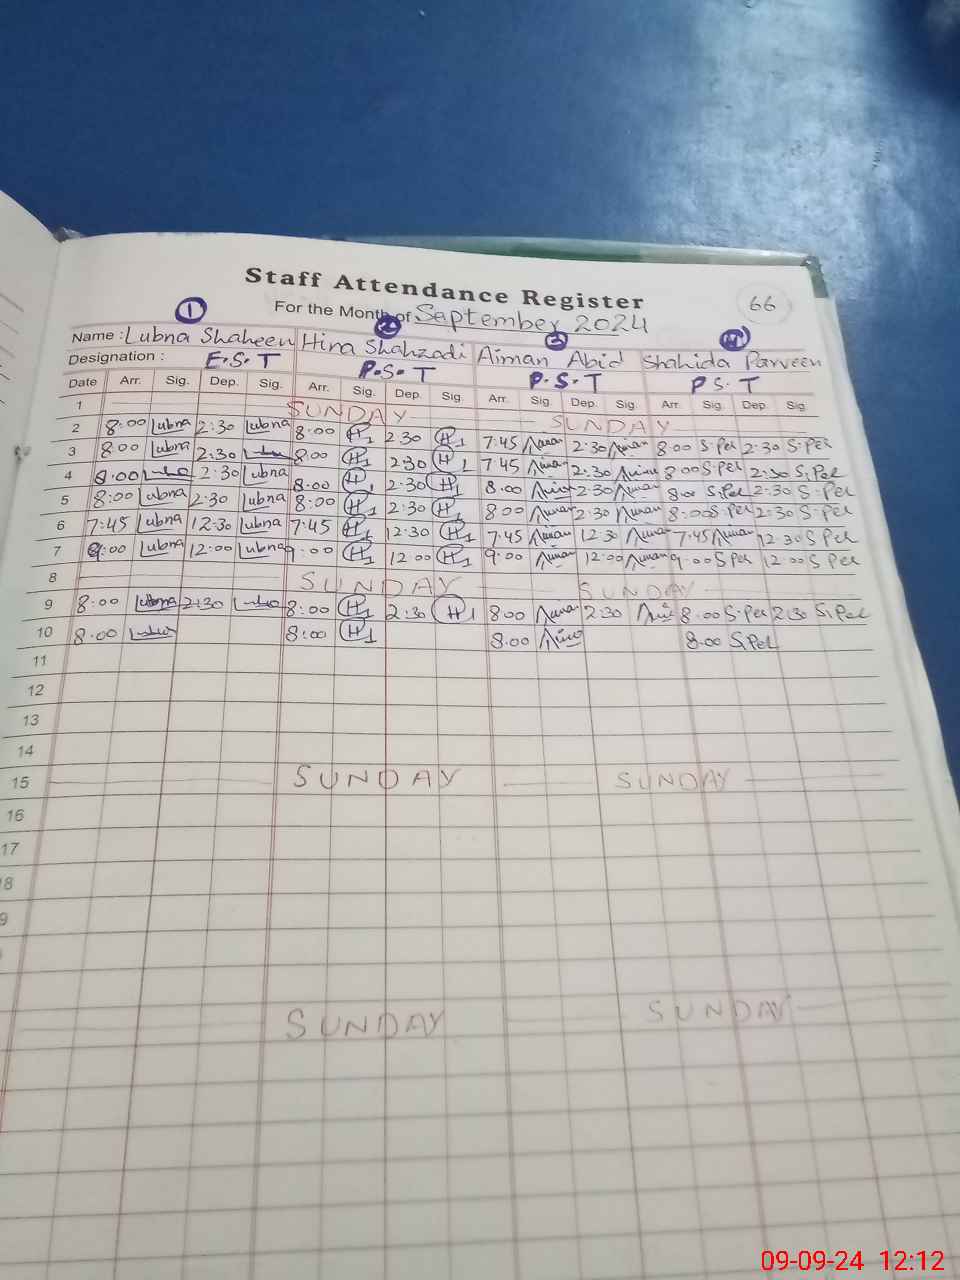 Staff Attendance Register
66
For the Month of September 2024
1 2 3 4
Name : Lubna Shaheen Hina Shahzadi Aiman Abid Shahida Parveen
Designation : E.S.T P.S.T P.S.T P S.T
Date Arr. Sig. Dep. Sig. Arr. Sig. Dep. Sig. Arr. Sig. Dep. Sig. Arr. Sig. Dep. Sig.
1 SUNDAY SUNDAY
2 8:00 Lubna 2:30 Lubna 8:00 H 2 30 H 7:45 2:30 8:00 S.Per 2:30 S.Per
3 8:00 Lubna 2:30 8:00 H 2:30 H 7:45 2:30 8:00 S.Per 2:30 S.Per
4 8:00 2:30 Lubna 8:00 H 2:30 H 8:00 2:30 8:00 S.Per 2:30 S.Per
5 8:00 Lubna 2:30 Lubna 8:00 H 2:30 H 8:00 2:30 8:00 S.Per 2:30 S.Per
6 7:45 Lubna 12:30 Lubna 7:45 H 12:30 H 7:45 12:30 7:45 12:30 S Per
7 9:00 Lubna 12:00 Lubna 9:00 H 12:00 H 9:00 12:00 9:00 S Per 12:00 S Per
8 SUNDAY SUNDAY
9 8:00 Lubna 2:30 8:00 H 2:30 H 8:00 2:30 8:00 S.Per 2:30 S.Per
10 8:00 8:00 H 8:00 8:00 S.Per
11
12
13
14
15 SUNDAY SUNDAY
16
17
18
SUNDAY SUNDAY
09-09-24 12:12